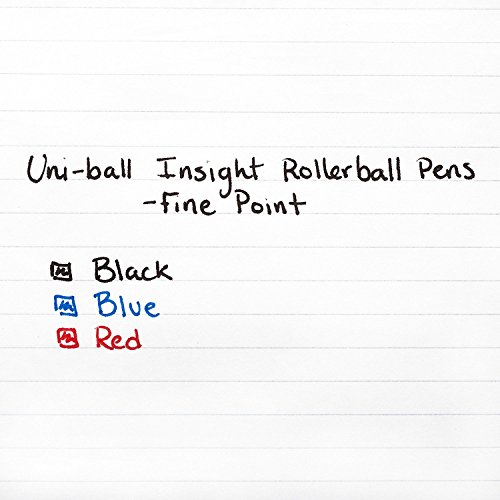 Uni-ball Insight Rollerball Pens
-Fine Point
Black
Blue
Red